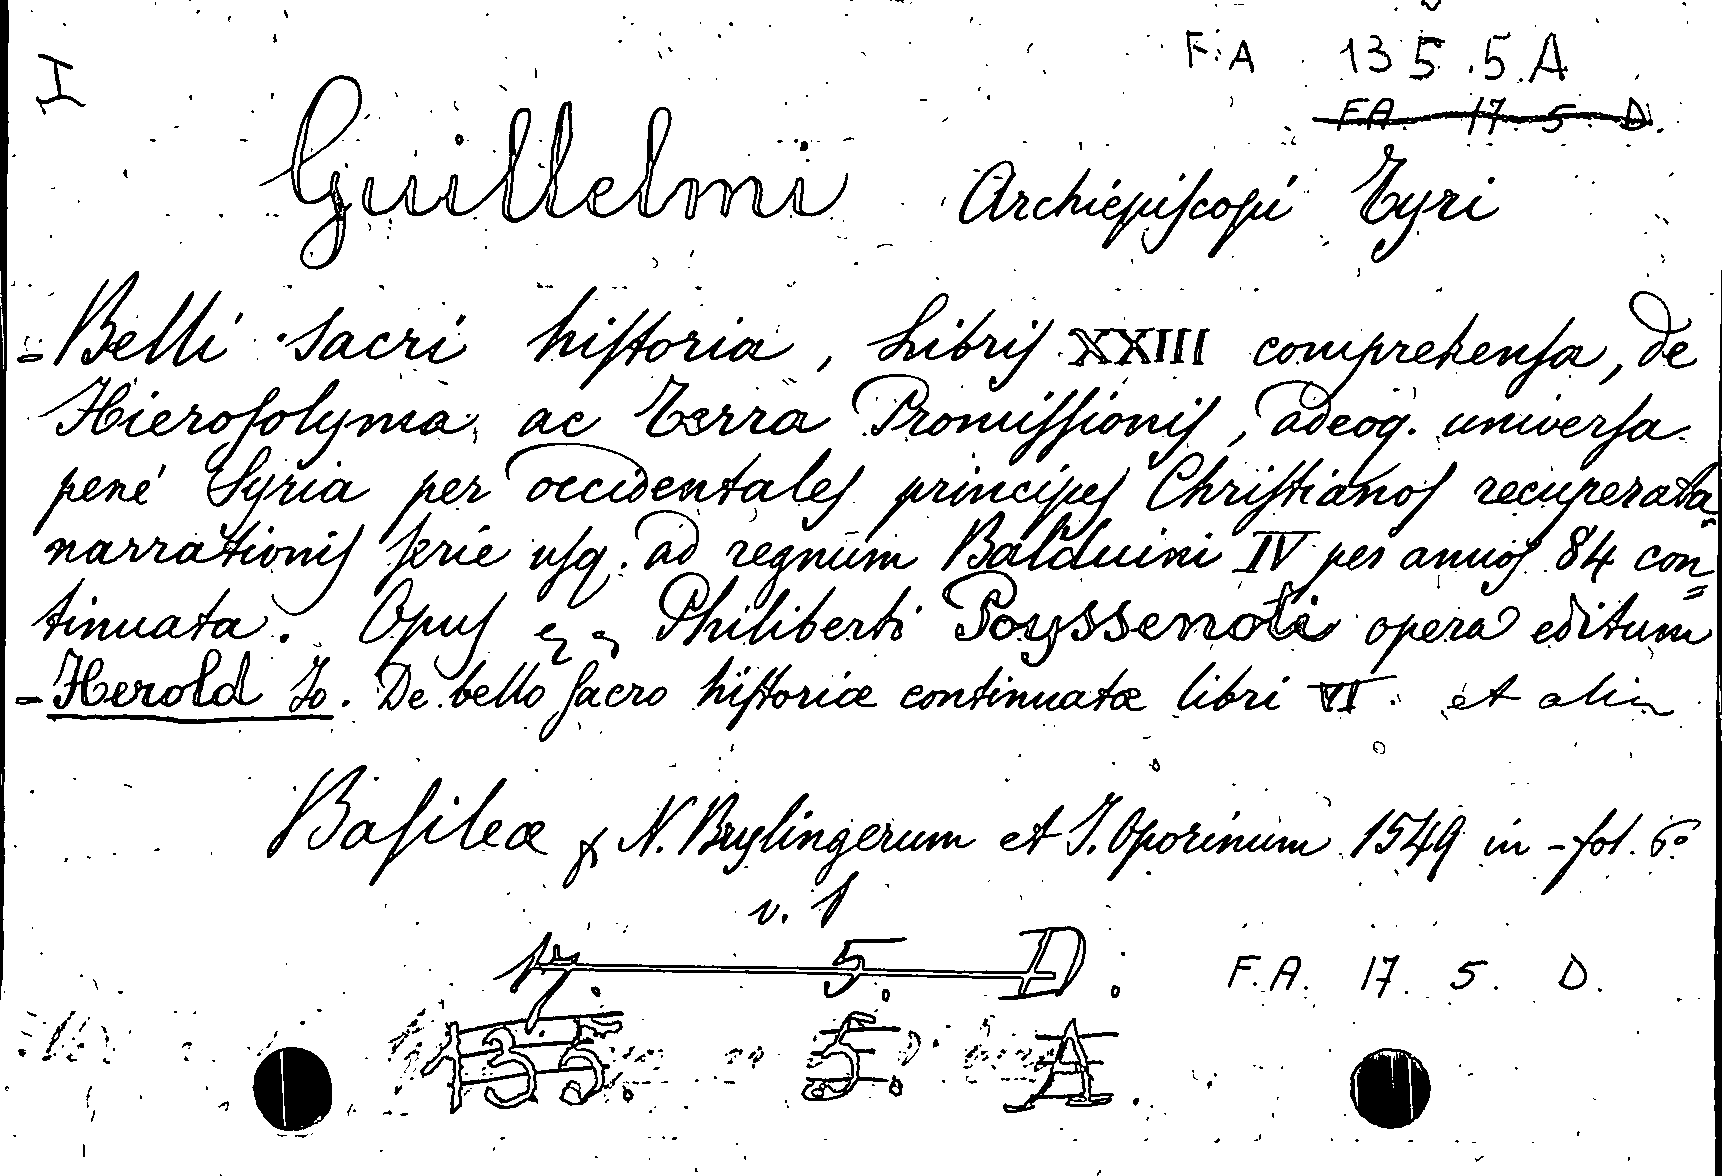 I
F.A 135.5.A
FA. 17. 5. D.
Guillelmi Archiepiscopi Tyri
=Belli sacri historia, Libris XXIII comprehensa, de
Hierosolyma, ac Terra Promissionis, adeoq. universa
pené Syria per occidentales principes Christianos recuperata
narrationis serie usq. ad regnum Balduini IV per annos 84 con=
tinuata. Opus Philiberti Poyssenoti opera editum
=Herold Jo. De bello sacro historiæ continuatæ libri VI. et alia
Basileæ N. Brylingerum et J. Oporinum 1549 in-fol.
v. 1
17. 5. D. F.A. 17. 5. D.
135. 5. A.